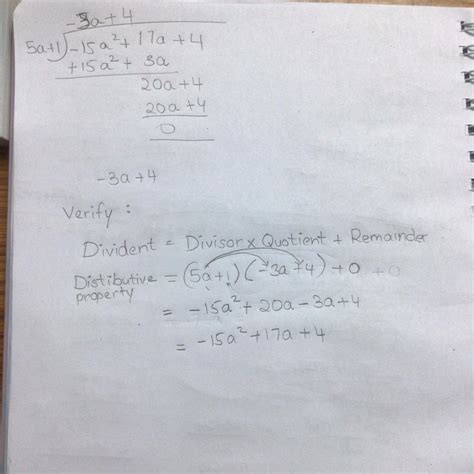 -3a+4
5a+1)-15a²+17a+4
+15a²+3a
20a+4
20a+4
0
-3a+4
Verify :
Divident = Divisor x Quotient + Remainder
Distibutive = (5a+1)(-3a+4)+0 +0
property
= -15a²+20a-3a+4
= -15a²+17a+4